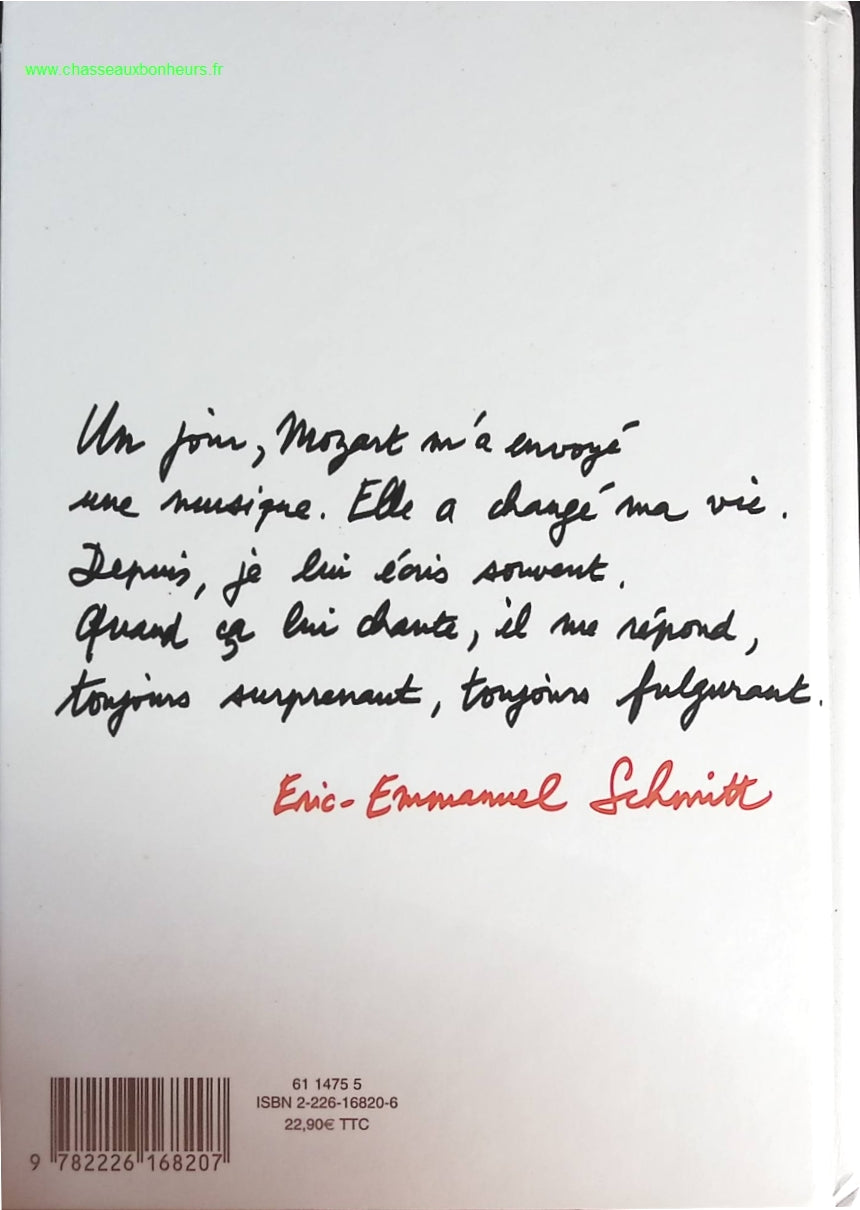 www.chasseauxbonheurs.fr
Un jour, Mozart m'a envoyé
une musique. Elle a changé ma vie.
Depuis, je lui écris souvent.
Quand ça lui chante, il me répond,
toujours surprenant, toujours fulgurant.
Eric-Emmanuel Schmitt
61 1475 5
ISBN 2-226-16820-6
22,90€ TTC
9 782226 168207